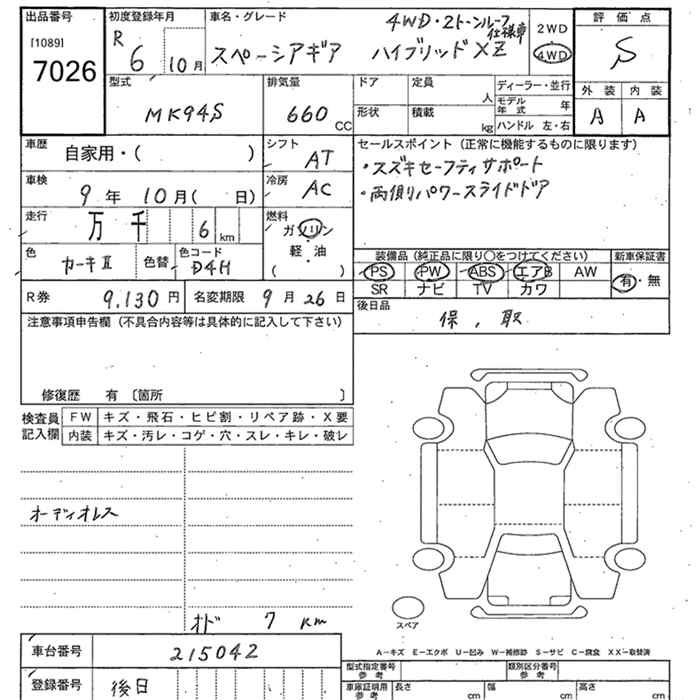 出品番号
[1089]
7026
初度登録年月
R 6 10月
車名・グレード
4WD・2トーンルーフ仕様車
スペーシアギア ハイブリッドXZ
2WD
4WD
評価点
S
外装 内装
A A
型式
MK94S
排気量
660 CC
ドア 定員 人
形状 積載 kg
ディーラー・並行
モデル年式 年
ハンドル 左・右
車歴
自家用・( )
シフト
AT
車検
9年 10月( 日)
冷房
AC
走行
万 千 6 km
燃料
ガソリン
軽・油
( )
色
カーキⅡ
色替
色コード
D4H
R券
9,130円
名変期限 9月26日
セールスポイント(正常に機能するものに限ります)
・スズキセーフティサポート
・両側パワースライドドア
装備品(純正品に限り○をつけてください)
PS PW ABS エアB AW
SR ナビ TV カワ
新車保証書
有・無
後日品
保、取
注意事項申告欄(不具合内容等は具体的に記入して下さい)
修復歴 有 〔箇所 〕
検査員記入欄
FW キズ・飛石・ヒビ割・リペア跡・X要
内装 キズ・汚レ・コゲ・穴・スレ・キレ・破レ
オーディオレス
オド 7 km
スペア
A−キズ E−エクボ U−凹み W−補修跡 S−サビ C−腐食 XX−取替済
車台番号
215042
登録番号
後日
型式指定番号
参考
類別区分番号
参考
車庫証明用
参考
長さ cm 幅 cm 高さ cm